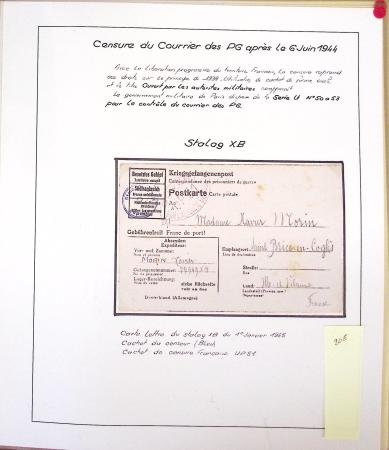 Censure du Courrier des PG après le 6 Juin 1944
Avec la liberation progressive du territoire Francais, la censure reprend
ses droits sur le principe de 1939. Utilisation du cachet de forme
et le titre Ouvert par les autorites militaires
Le gouvernement militaire de Paris dispose de la Serie U N° 50 a 53
pour le contrôle du courrier des PG.
Stalag XB
Besetztes Gebiet
Kriegsgefangenenpost
Correspondance des prisonniers de guerre
Postkarte Carte postale
An
Madame Xavier Morin
Gebührenfrei! Franc de port!
Absender:
Expéditeur:
Vor- und Zuname:
Nom et prénom
Morin Xavier
Gefangenennummer:
Lager-Bezeichnung:
siehe Rückseite
voir au dos
Deutschland (Allemagne)
Empfangsort:
Lieu de destination
Straße:
Rue
Land:
Ille et Vilaine
France
Carte Lettre du stalag XB du 1er Janvier 1945
Cachet du censeur (Bleu)
Cachet de censure Française
20€